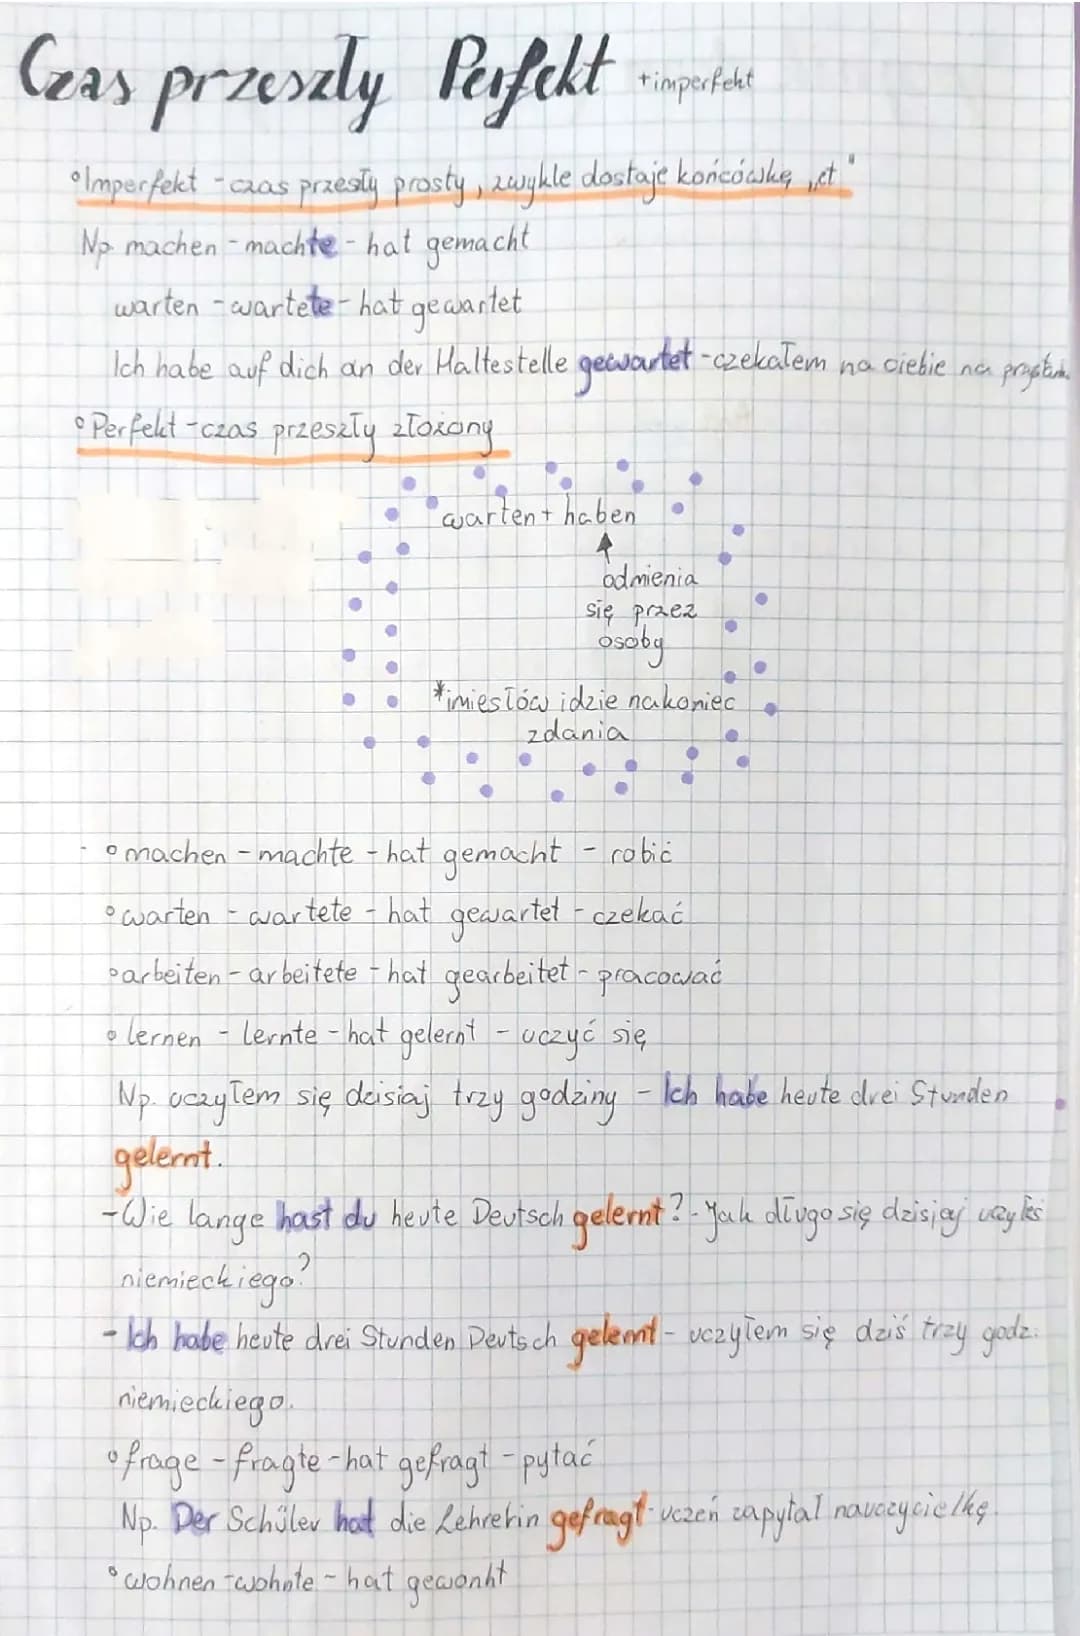 Czas przeszły Perfekt +imperfekt
°Imperfekt - czas przesły prosty, zwykle dostaje końcówkę „et"
Np. machen - machte - hat gemacht
warten - wartete - hat gewartet
Ich habe auf dich an der Haltestelle gewartet - czekałem na ciebie na
° Perfekt - czas przeszły złożony
warten + haben
odmienia
się przez
osoby
*imiesłów idzie na koniec
zdania
° machen - machte - hat gemacht - robić
° warten - wartete - hat gewartet - czekać
° arbeiten - arbeitete - hat gearbeitet - pracować
° lernen - lernte - hat gelernt - uczyć się
Np. uczyłem się dzisiaj trzy godziny - Ich habe heute drei Stunden
gelernt.
- Wie lange hast du heute Deutsch gelernt? - Jak długo się dzisiaj uczyłeś
niemieckiego?
- Ich habe heute drei Stunden Deutsch gelernt - uczyłem się dziś trzy godz.
niemieckiego.
° frage - fragte - hat gefragt - pytać
Np. Der Schüler hat die Lehrerin gefragt - uczeń zapytał nauczycielkę.
° wohnen - wohnte - hat gewonht